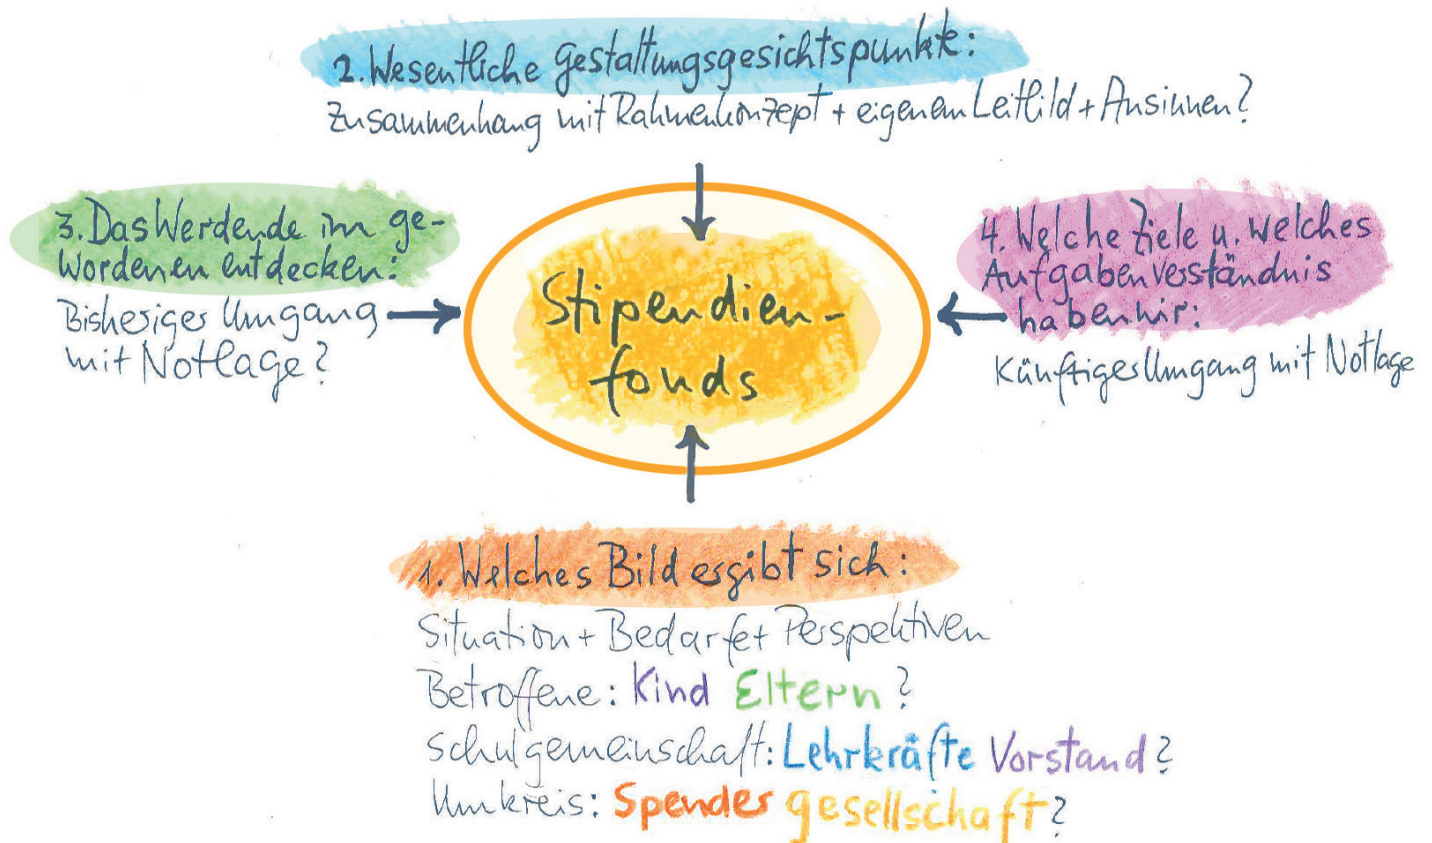 2. Wesentliche Gestaltungsgesichtspunkte:
Zusammenhang mit Rahmenkonzept + eigenem Leitbild + Ansinnen?
3. Das Werdende im ge-
wordenen entdecken:
Bisheriger Umgang
mit Notlage?
Stipendien-
fonds
4. Welche Ziele u. welches
Aufgabenverständnis
haben wir:
Künftiger Umgang mit Notlage
1. Welches Bild ergibt sich:
Situation + Bedarfe + Perspektiven
Betroffene: Kind Eltern?
Schulgemeinschaft: Lehrkräfte Vorstand?
Umkreis: Spender gesellschaft?